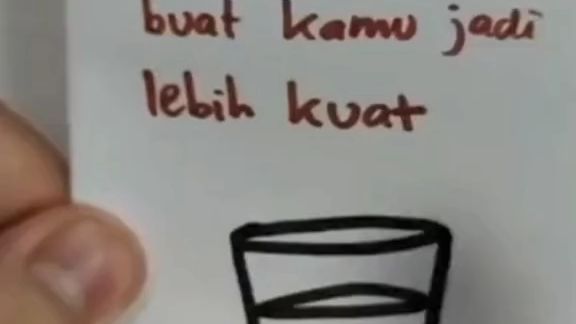 buat kamu jadi
lebih kuat